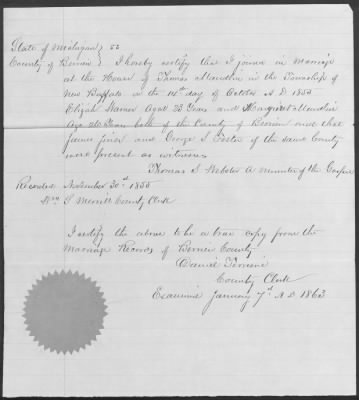 State of Michigan } SS
County of Berrien } I hereby certify that I joined in Marriage
at the House of Thomas Maudlin in the Township of
New Buffalo on the 14th day of October A D 1855
Elijah Warner Aged 23 Years and Margaret Maudlin
Age 20 Years both of the County of Berrien and that
James and George S Foster of the same County
were present as witnesses
Thomas S Webster A minister of the Gospel
Recorded November 30th 1855
Wm S Merrill County Clerk
I certify the above to be a true copy from the
Marriage Records of Berrien County
Daniel
County Clerk
January 7th A D 1863